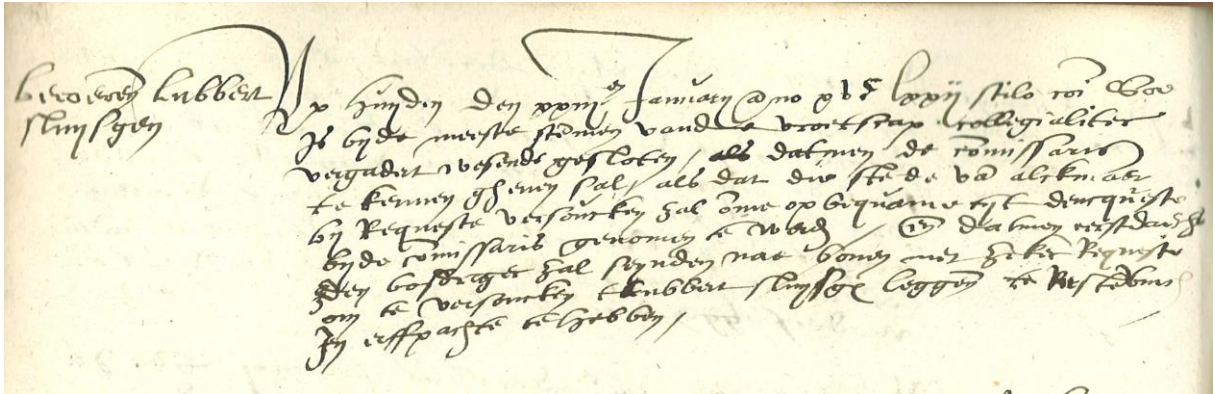 beroeren Lubbert
sluysgen
Op Huyden den xxiii en January a no xv c lxxii stilo coi
Is byde meeste stemen vande vroetscap collegialiter
vergadert wesende gesloten / als datmen de comissaris
te kennen gheven sal / als dat die stede va alckmaer
by Requeste versoucken zal ome op bequame tyt dencqueste
byde comissaris genomen te werd / En datmen eerstdaechs
den bosdrager zal seynden nae boven met zeker Requeste
om te versoucken t Lubbert sluysge leggen te
In erffpachte te hebben /